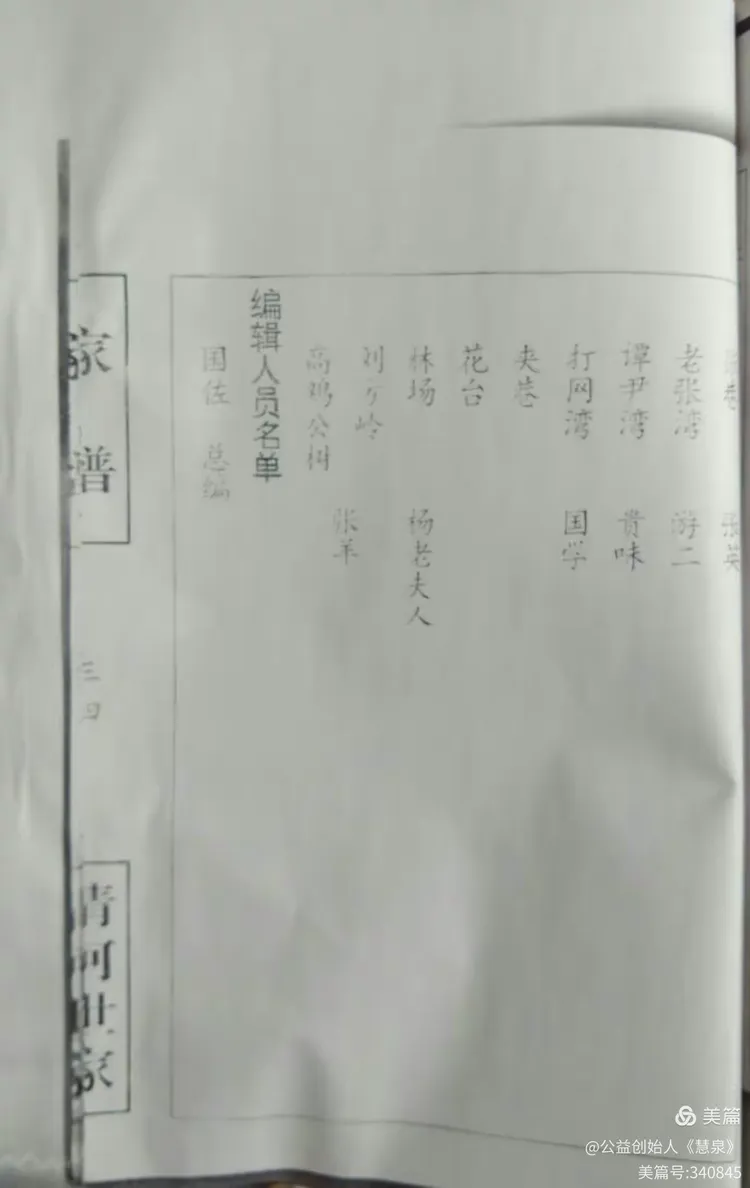 张英
老张湾 游二
谭尹湾 贵味
打网湾 国学
夹巷
花台
林场 杨老夫人
刘 岭 张羊
高鸡公树
编辑人员名单
国佐 总编
家谱
三四
清河世家
美篇
@公益创始人《慧泉》
美篇号:340845